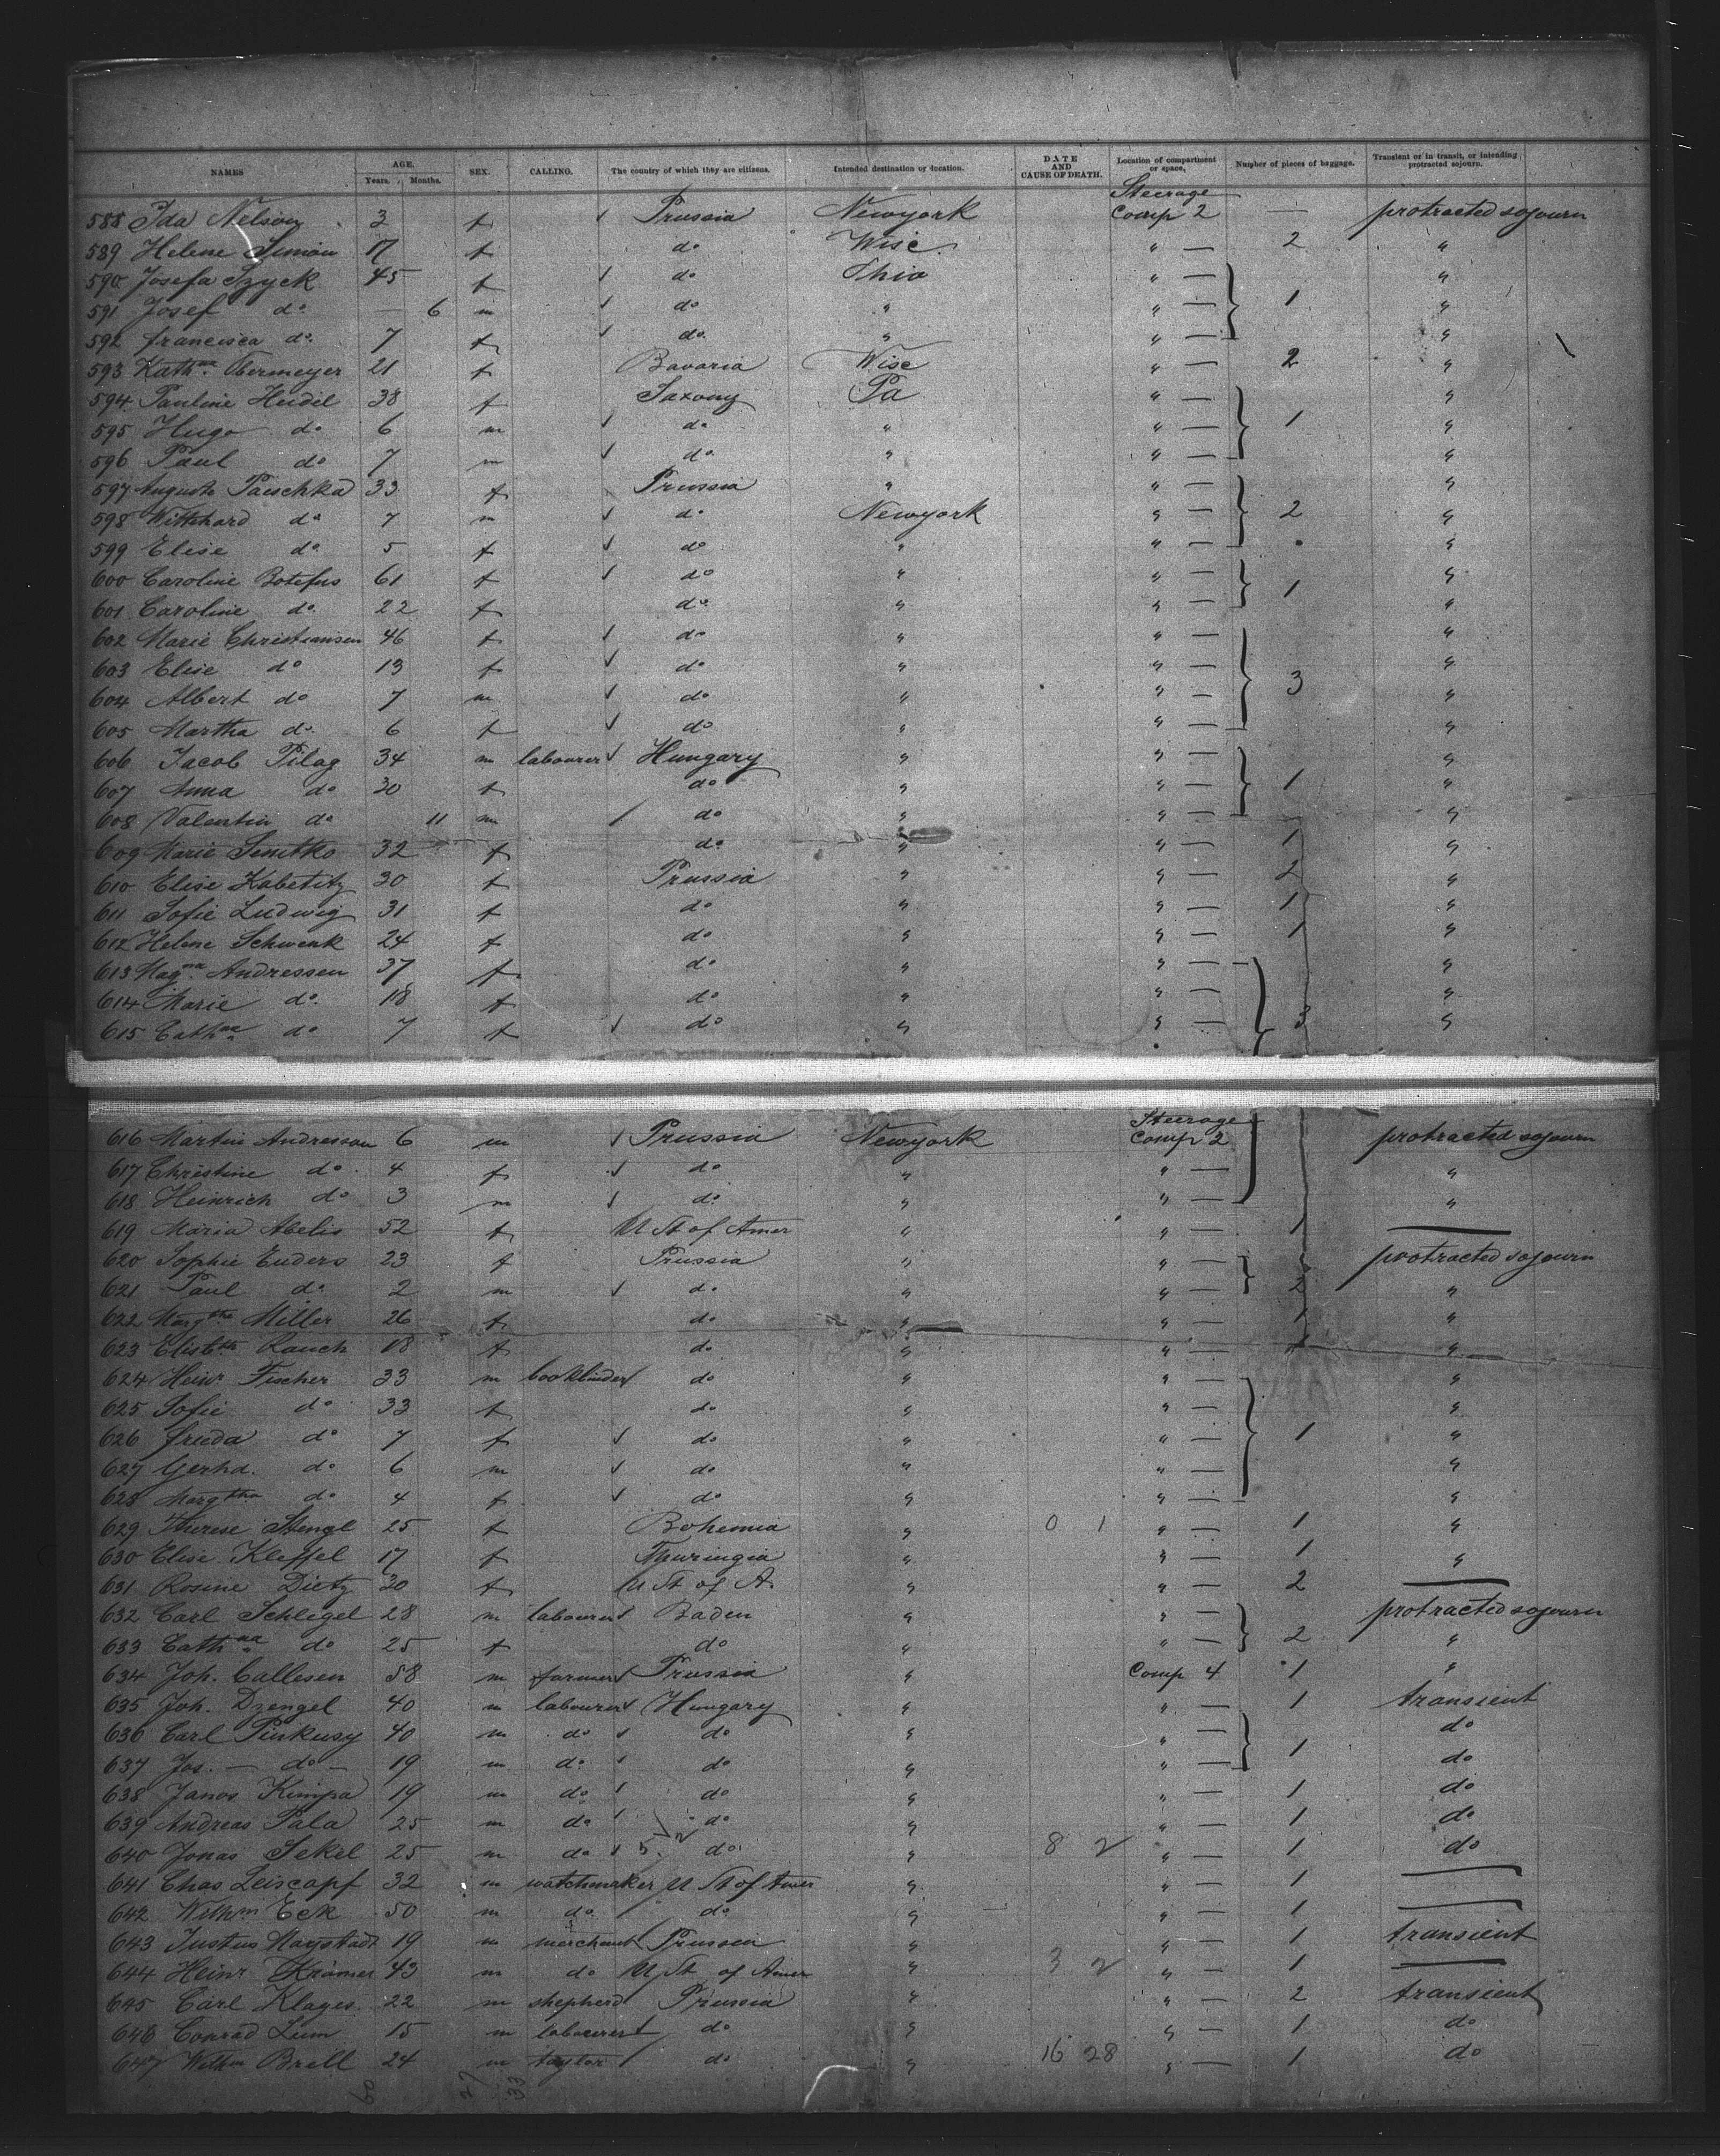 NAMES AGE. Years. Months. SEX. CALLING. The country of which they are citizens. Intended destination or location. DATE AND CAUSE OF DEATH. Location of compartment or space, Number of pieces of baggage. Transient or in transit, or intending protracted sojourn.
588 Ida Nelson 3 f ✓ Prussia Newyork Steerage Comp 2 — protracted sojourn
589 Helene Simon 17 f do Wisc. " — 2 "
590 Josefa Szyck 45 f ✓ do Ohio " — "
591 Josef do — 6 m ✓ do " " — 1 "
592 Francisca do 7 f ✓ do. " " — "
593 Kathna Obermeyer 21 f Bavaria Wisc " — 2 "
594 Pauline Heidel 38 f Saxony Pa " — "
595 Hugo do 6 m ✓ do " " — 1 "
596 Paul do 7 m ✓ do " " — "
597 Auguste Paeschka 33 f Prussia " " — "
598 Witthard do 7 m ✓ do Newyork " — 2 "
599 Elise do 5 f ✓ do " " — "
600 Caroline Botefus 61 f ✓ do " " — "
601 Caroline do 22 f do " " — 1 "
602 Marie Christiansen 46 f ✓ do " " — "
603 Elise do 13 f ✓ do " " — "
604 Albert do 7 m ✓ do " " — 3 "
605 Martha do 6 f ✓ do " " — "
606 Jacob Pilag 34 m labourer ✓ Hungary " " — "
607 Anna do 30 f do " " — 1 "
608 Valentin do 11 m ✓ do " " — "
609 Marie Smitko 32 f do " " — 1 "
610 Elise Kabetitz 30 f Prussia " " — 2 "
611 Sofie Ludwig 31 f do " " — 1 "
612 Helene Schwenk 24 f do " " — 1 "
613 Magna Andressen 37 f do " " — "
614 Marie do 18 f do " " — "
615 Cathna do 7 f ✓ do " " — 3 "
616 Martin Andressen 6 m ✓ Prussia Newyork Steerage Comp 2 protracted sojourn
617 Christine do 4 f ✓ do " " — "
618 Heinrich do 3 m ✓ do " " — "
619 Maria Abelis 52 f U St of Amer " " — 1 —
620 Sophie Enders 23 f Prussia " " — protracted sojourn
621 Paul do 2 m ✓ do " " — 2 "
622 Margtha Miller 26 f do " " — 1 "
623 Elisbth Rauch 18 f do " " — 1 "
624 Heinr Fischer 33 m bookbinder ✓ do " " — "
625 Sofie do 33 f do " " — "
626 Frieda do 7 f ✓ do " " — 1 "
627 Gerhd. do 6 m ✓ do " " — "
628 Margtha do 4 f ✓ do " " — "
629 Therese Stengl 25 f Bohemia " 0 1 " — 1 "
630 Elise Kleffel 17 f Thuringia " " — 1 "
631 Rosine Dietz 30 f U St of A. " " — 2 —
632 Carl Schlegel 28 m labourer ✓ Baden " " — protracted sojourn
633 Cathna do 25 f do " " — 2 "
634 Joh. Callesen 58 m farmer ✓ Prussia " Comp 4 1 "
635 Joh. Dzengel 40 m labourer ✓ Hungary " " — 1 transient
636 Carl Pinkusy 40 m do ✓ do " " — do
637 Jos. — do — 19 m do ✓ do " " — 1 do
638 Janos Kimpa 19 m do ✓ do " " — 1 do
639 Andreas Pala 25 m do ✓ do " " — 1 do
640 Jonas Sekel 25 m do ✓ 5 2 do " 8 2 " — 1 do
641 Chas Leiscapf 32 m watchmaker U St of Amer " " — 1 —
642 Wilhm Eck 50 m do ✓ do " " — 1 —
643 Justus Maystadt 19 m merchant ✓ Prussia " " — 1 transient
644 Heinr Krämer 43 m do U St of Amer " 3 2 " — 1 —
645 Carl Klages 22 m shepherd Prussia " " — 2 transient
646 Conrad Lum 15 m labourer ✓ do " " — 1 do
647 Wilhm Brell 24 m taylor ✓ do " 16 28 " — 1 do
60 27 33